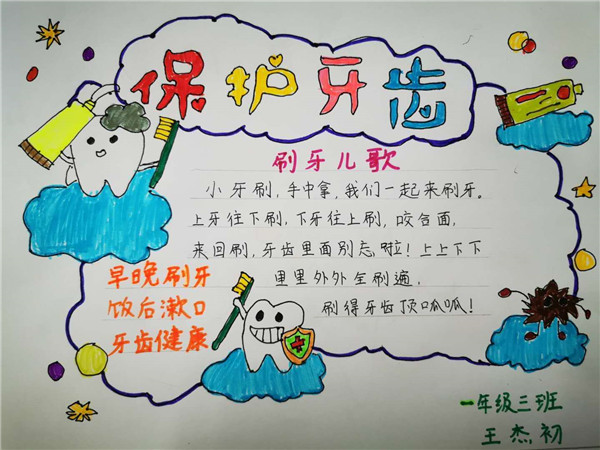 保护牙齿
刷牙儿歌
小牙刷,手中拿,我们一起来刷牙。
上牙往下刷,下牙往上刷,咬合面,
来回刷,牙齿里面别忘啦!上上下下
里里外外全刷遍,
刷得牙齿顶呱呱!
早晚刷牙
饭后漱口
牙齿健康
一年级三班
王杰初